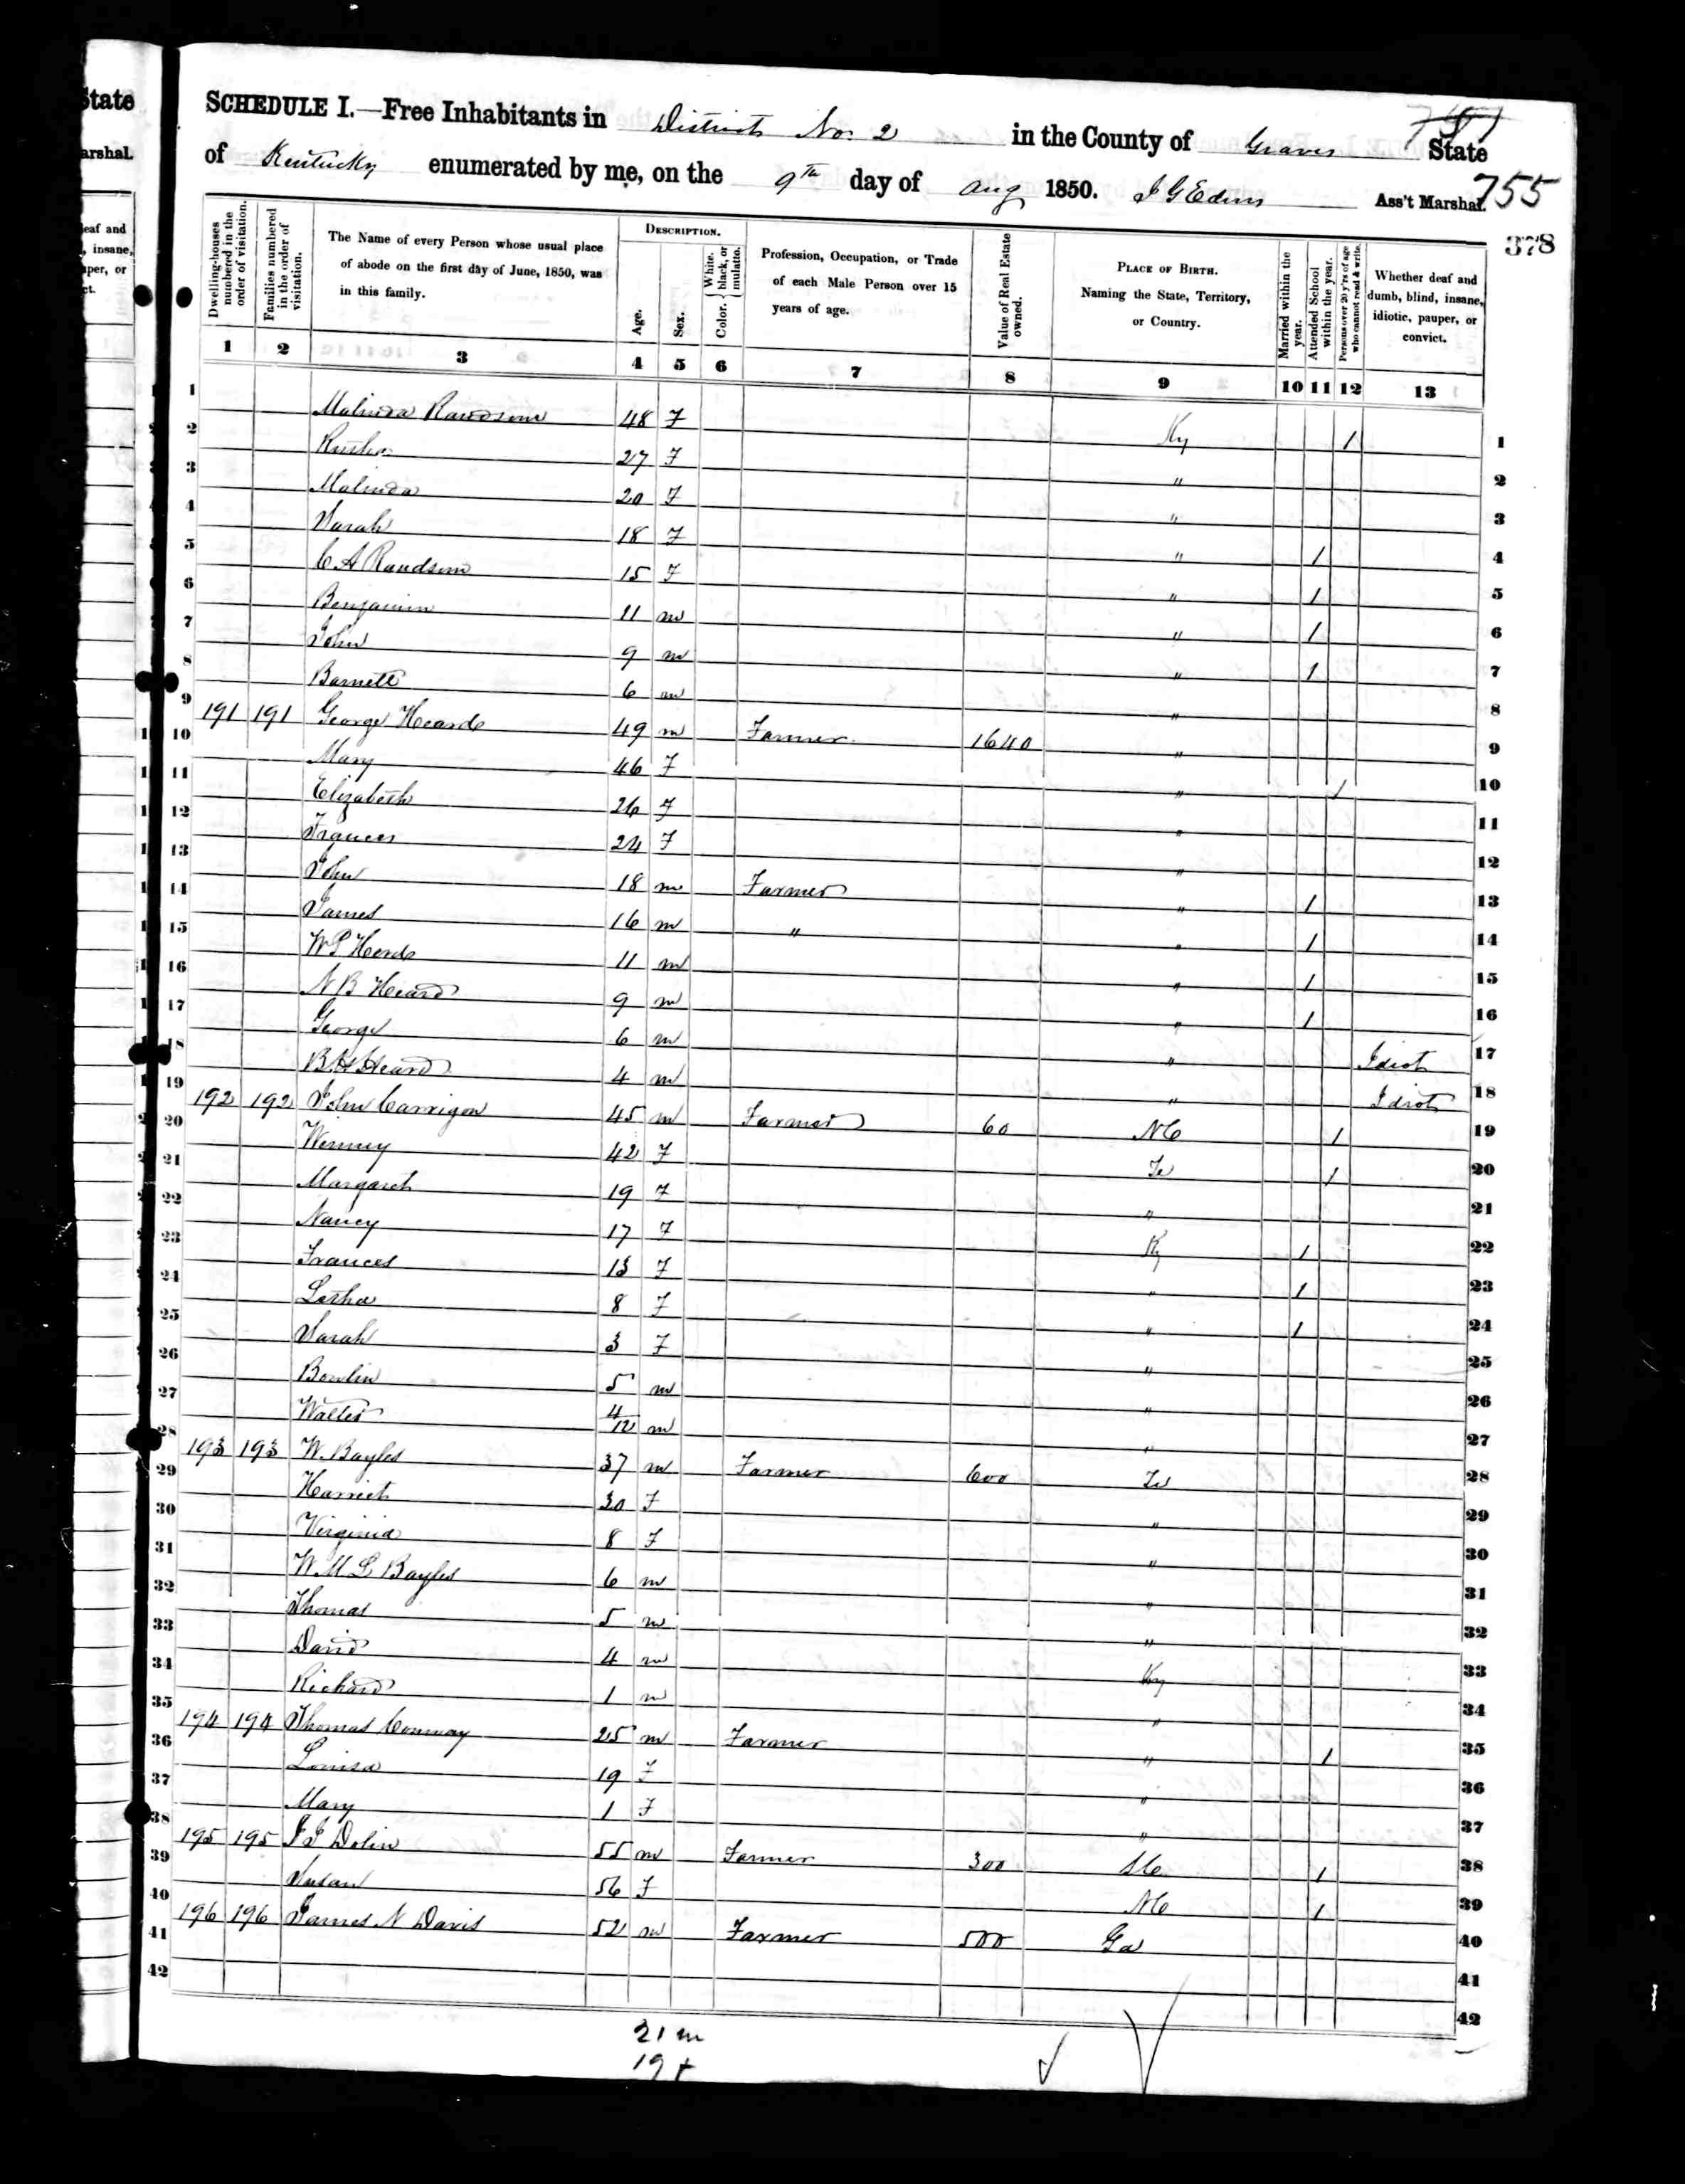 State
arshal.
eaf and
, insane,
uper, or
ct.
757
SCHEDULE I.—Free Inhabitants in District No. 2 in the County of Graves State
of Kentucky enumerated by me, on the 9th day of Aug 1850. J G Edins Ass't Marshal. 755
378
Dwelling-houses numbered in the order of visitation.
Families numbered in the order of visitation.
The Name of every Person whose usual place of abode on the first day of June, 1850, was in this family.
DESCRIPTION.
Age.
Sex.
Color. { White, black, or mulatto.
Profession, Occupation, or Trade of each Male Person over 15 years of age.
Value of Real Estate owned.
PLACE OF BIRTH. Naming the State, Territory, or Country.
Married within the year.
Attended School within the year.
Persons over 20 y'rs of age who cannot read & write.
Whether deaf and dumb, blind, insane, idiotic, pauper, or convict.
1 2 3 4 5 6 7 8 9 10 11 12 13
1 Malinda Randsom 48 F Ky 1 1
2 27 F " 2
3 Malinda 20 F " 3
4 Sarah 18 F " 1 4
5 C A Randsom 15 F " 1 5
6 Benjamin 11 m " 1 6
7 John 9 m " 1 7
8 Barnett 6 m " 8
9 191 191 George Heard 49 m Farmer 1640 " 9
10 Mary 46 F " 1 10
11 Elizabeth 26 F " 11
12 Frances 24 F " 12
13 John 18 m Farmer " 1 13
14 James 16 m " " 1 14
15 W P Heard 11 m " 1 15
16 N B Heard 9 m " 1 16
17 George 6 m " Idiot 17
18 B H Heard 4 m " Idiot 18
19 192 192 John Carrigan 45 m Farmer 60 NC 1 19
20 Winney 42 F Te 1 20
21 Margaret 19 F " 21
22 Nancy 17 F Ky 1 22
23 Frances 13 F " 1 23
24 8 F " 1 24
25 Sarah 3 F " 25
26 Bowlin 5 m " 26
27 Walter 4/12 m " 27
28 193 193 W. Bayles 37 m Farmer 600 Te 28
29 Harriet 30 F " 29
30 Virginia 8 F " 30
31 W. M L Bayles 6 m " 31
32 Thomas 5 m " 32
33 David 4 m Ky 33
34 Richard 1 m " 34
35 194 194 Thomas Conway 25 m Farmer " 1 35
36 Louisa 19 F " 36
37 Mary 1 F " 37
38 195 195 J J Dolin 55 m Farmer 300 SC 1 38
39 Susan 56 F NC 1 39
40 196 196 James N Davis 52 m Farmer 500 Ga 40
41 41
42 42
21 m
19 f